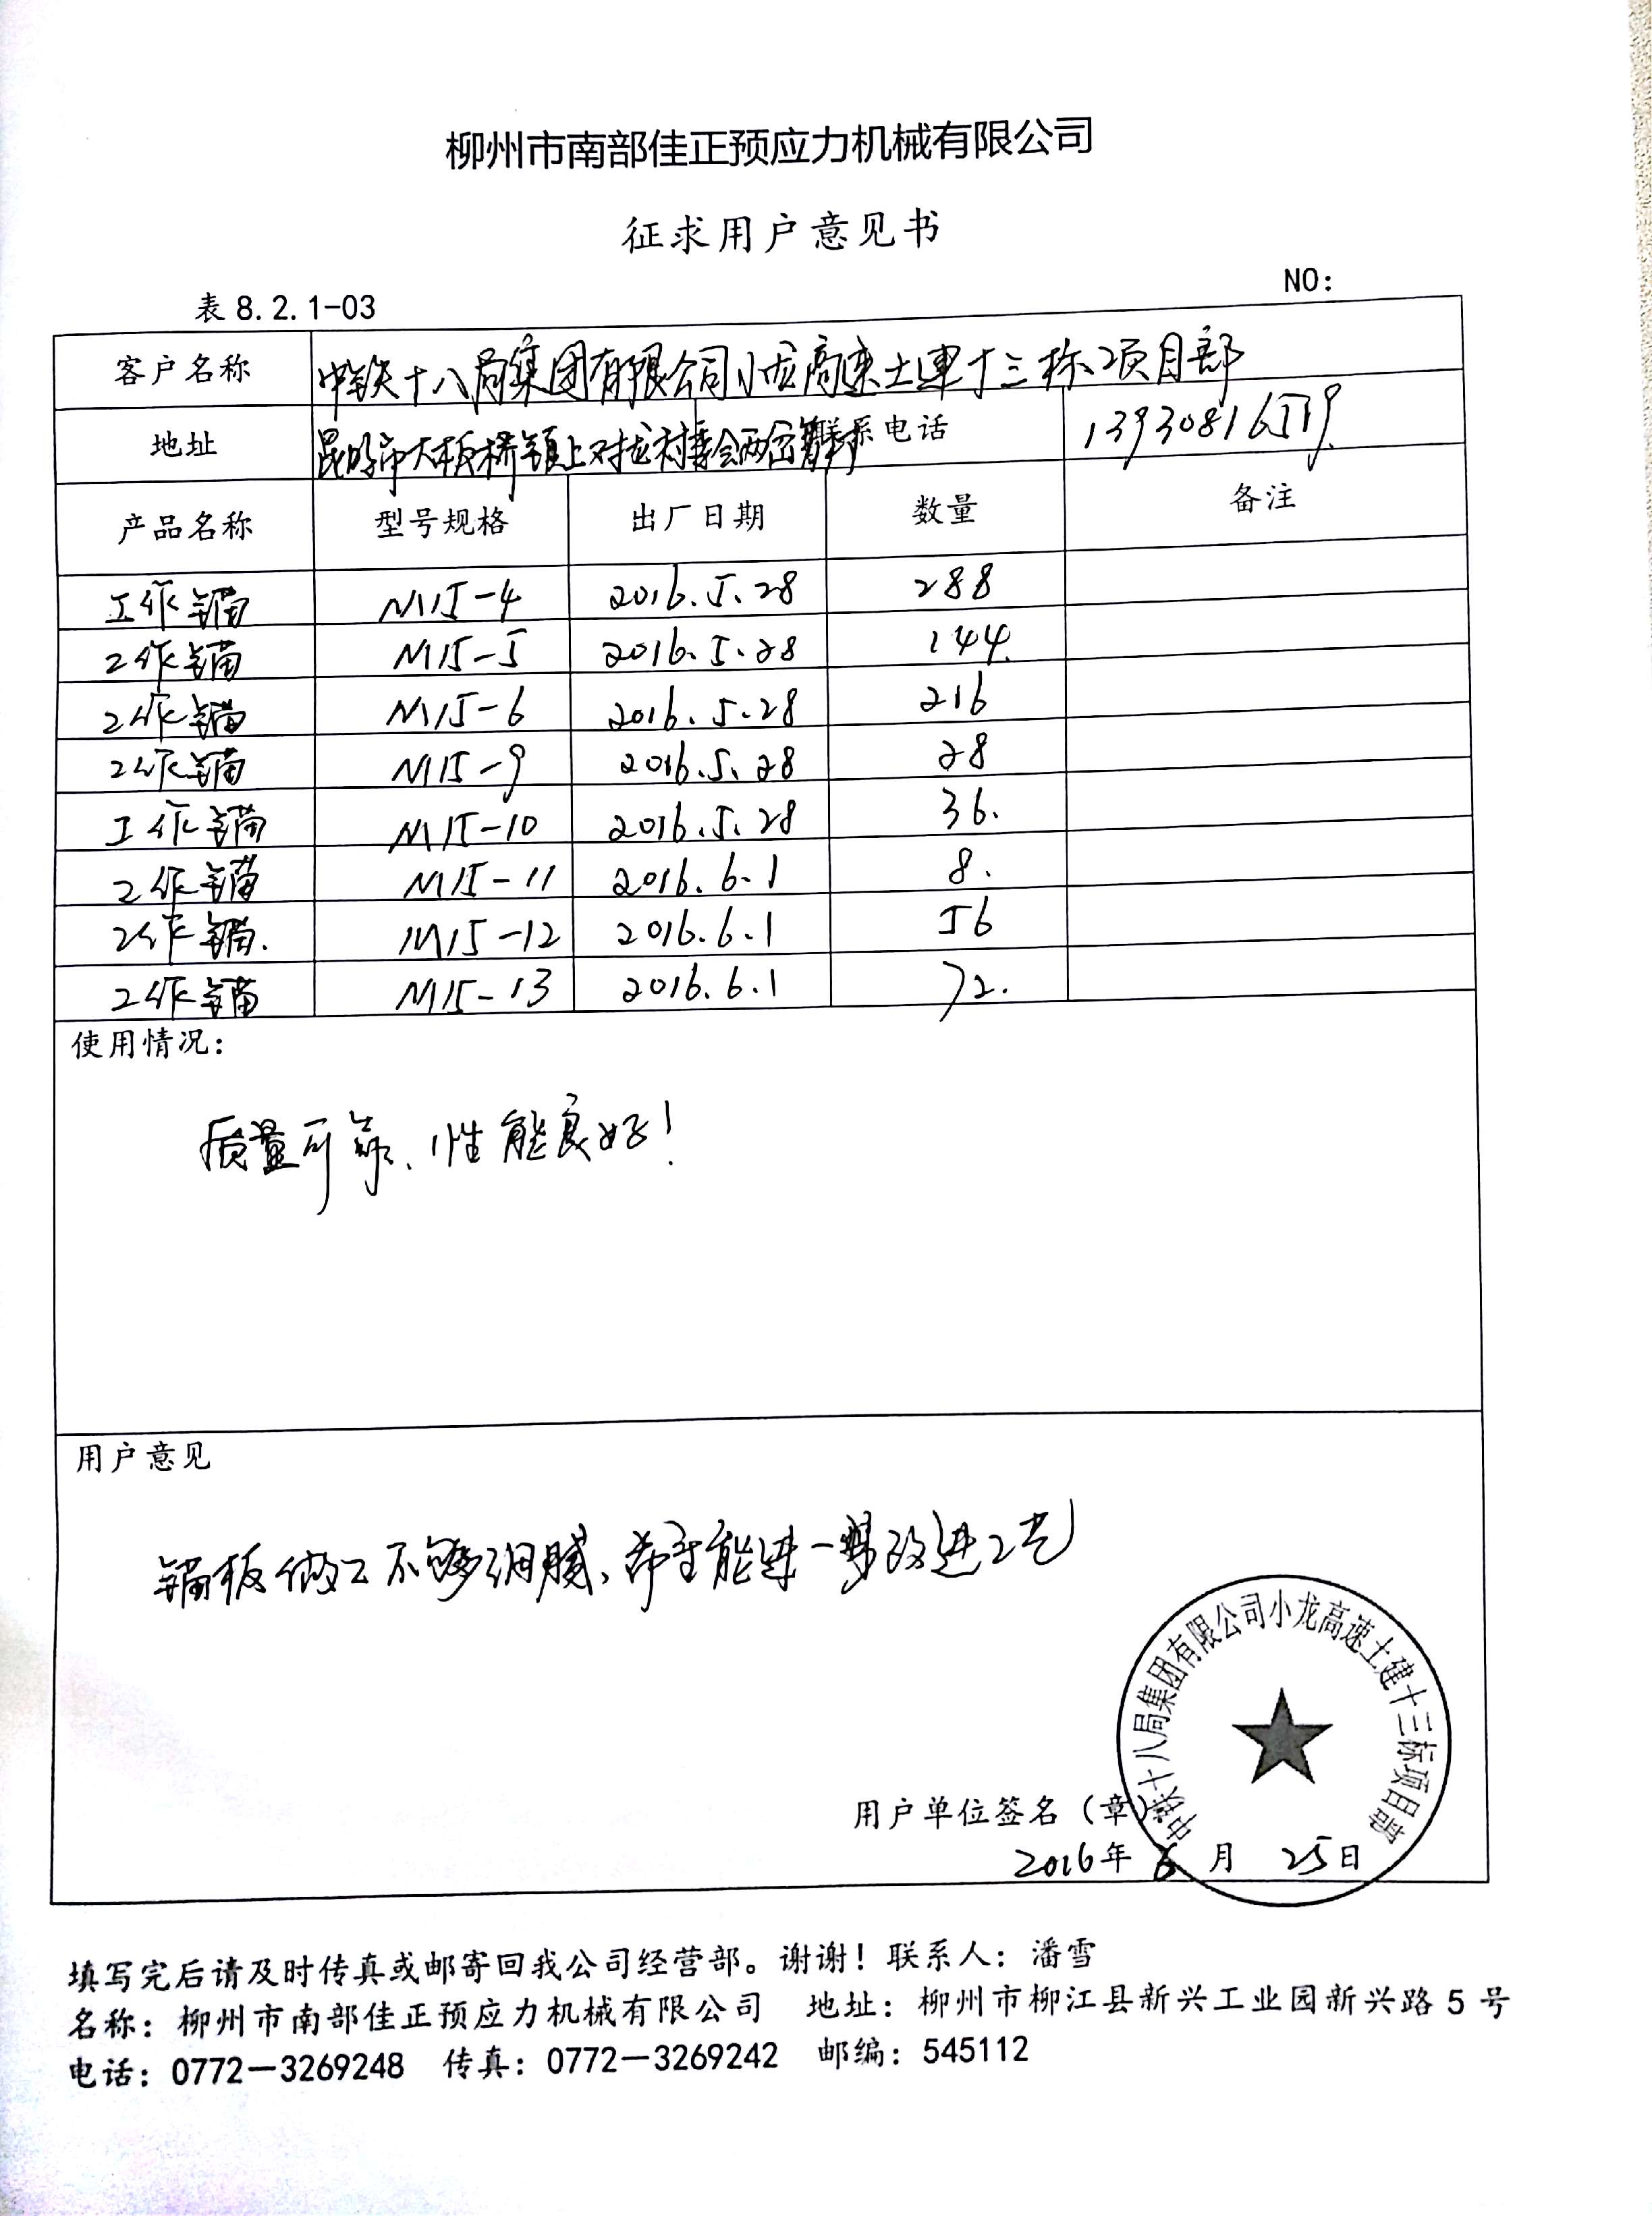 柳州市南部佳正预应力机械有限公司
征求用户意见书
表8.2.1-03 NO:
客户名称 中铁十八局集团有限公司小龙高速土建十三标项目部
地址 昆明市大板桥镇上对龙村 联系电话 13930816519
产品名称 型号规格 出厂日期 数量 备注
工作锚 M15-4 2016.5.28 288
工作锚 M15-5 2016.5.28 144
工作锚 M15-6 2016.5.28 216
工作锚 M15-9 2016.5.28 28
工作锚 M15-10 2016.5.28 36.
工作锚 M15-11 2016.6.1 8.
工作锚. M15-12 2016.6.1 56
工作锚 M15-13 2016.6.1 72.
使用情况:
质量可靠、性能良好!
用户意见
锚板做工不够细腻、希望能进一步改进工艺
中铁十八局集团有限公司小龙高速土建十三标项目部
用户单位签名(章)
2016年 月 25日
填写完后请及时传真或邮寄回我公司经营部。谢谢!联系人:潘雪
名称:柳州市南部佳正预应力机械有限公司 地址:柳州市柳江县新兴工业园新兴路5号
电话:0772—3269248 传真:0772—3269242 邮编:545112